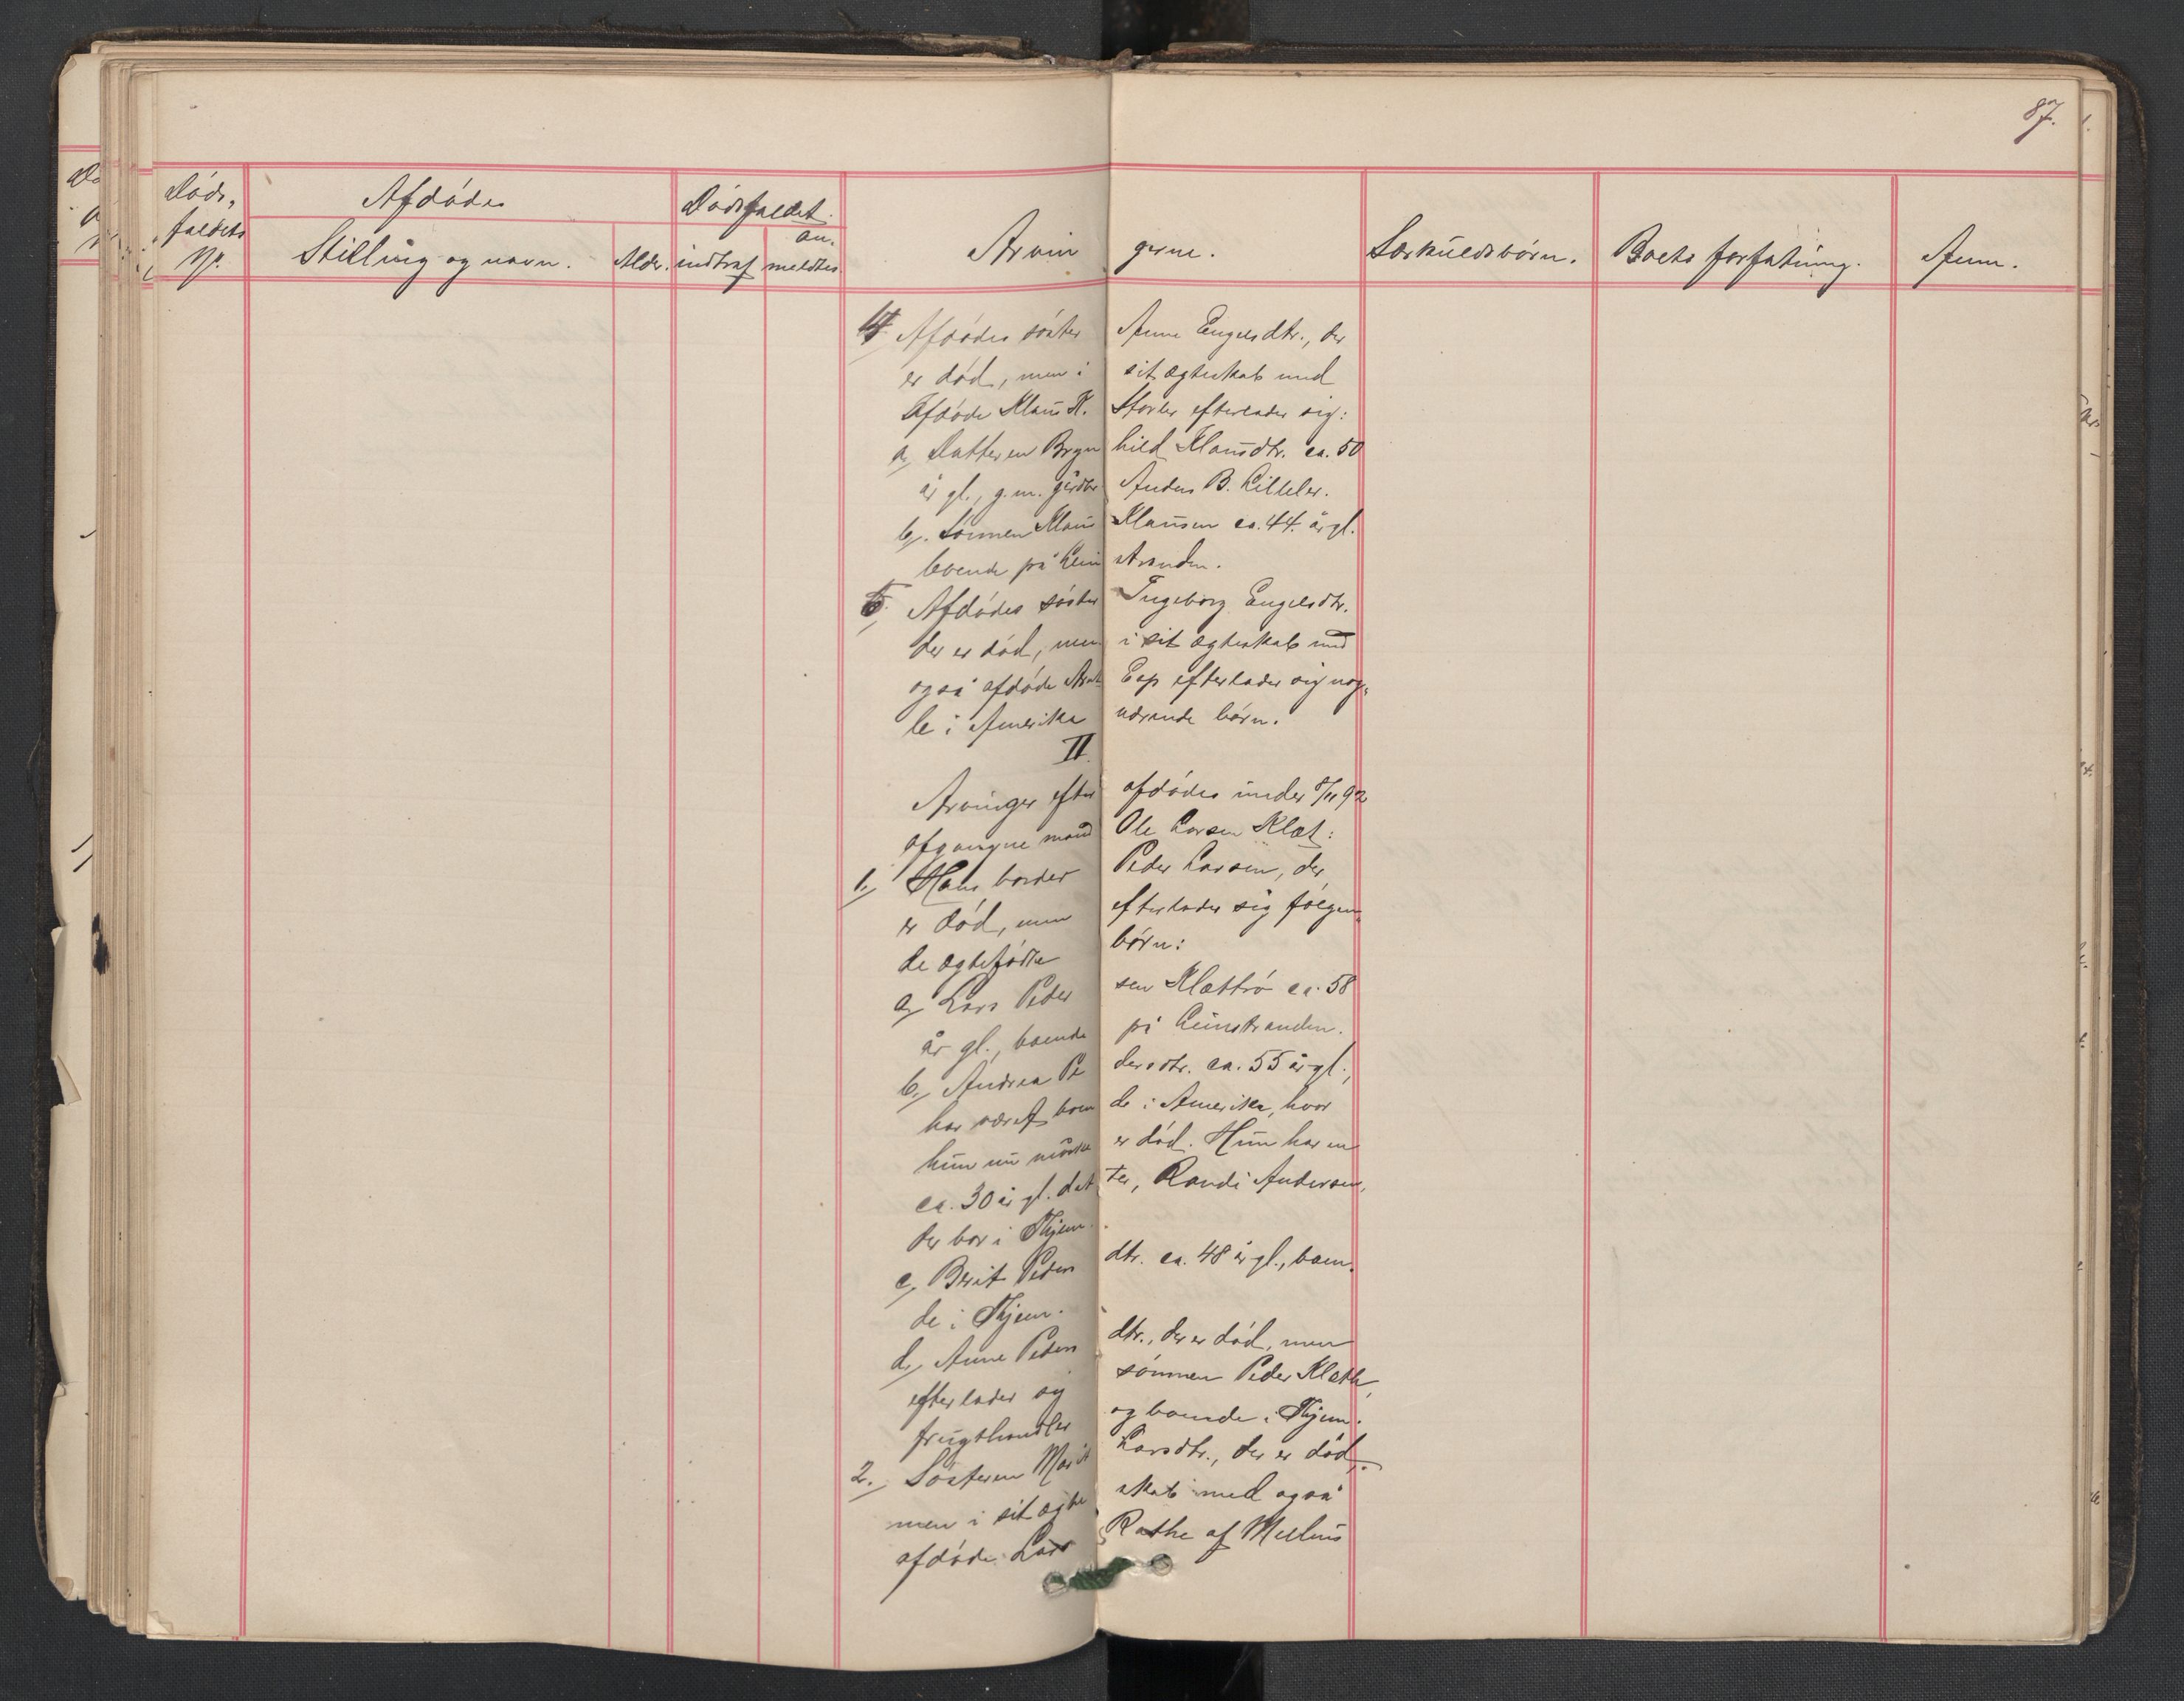 87.
Døds-
faldets
No.
Afdødes
Stilling og navn.
Alder.
Dødsfaldet
indtraf
an-
meldtes
Arvingerne.
Særkuldsbørn.
Boets forfatning.
Anm.
4, Afdødes søster Anne Engelsdtr., der
er død, men i sit ægteskab med
afdøde Klaus K. Storler efterlader sig:
a, Datteren Brynhild Klausdtr. ca. 50
år gl., g. m. gårdbr. Anders B. Lilleler.
b, Sønnen Klaus Klausen ca. 44 år gl.
boende på Leinstranden.
5, Afdødes søster Ingeborg Engelsdtr.
der er død, men i sit ægteskab med
også afdøde Esp efterlader sig nog-
le i Amerika værende børn.
II.
Arvinger efter afdødes under 8/11 92
afgangne mand Ole Larsen Klæt:
1, Hans broder Peder Larsen, der
er død, men efterlader sig følgen-
de ægtefødte børn:
a, Lars Pedersen Klættrø ca. 58
år gl., boende på Leinstranden.
b, Andrea Pedersdtr. ca. 55 år gl.,
har været boende i Amerika, hvor
hun nu måske er død. Hun har en
ca. 30 år gl. datter, Randi Andersen,
der bor i Thjem.
c, Berit Pedersdtr. ca. 48 år gl., boen-
de i Thjem.
d, Anne Pedersdtr., der er død, men
efterlader sig sønnen Peder Klæth,
frugthandler og boende i Thjem.
2, Søsteren Marit Larsdtr., der er død,
men i sit ægteskab med også
afdøde Lars Rathe af Melhus